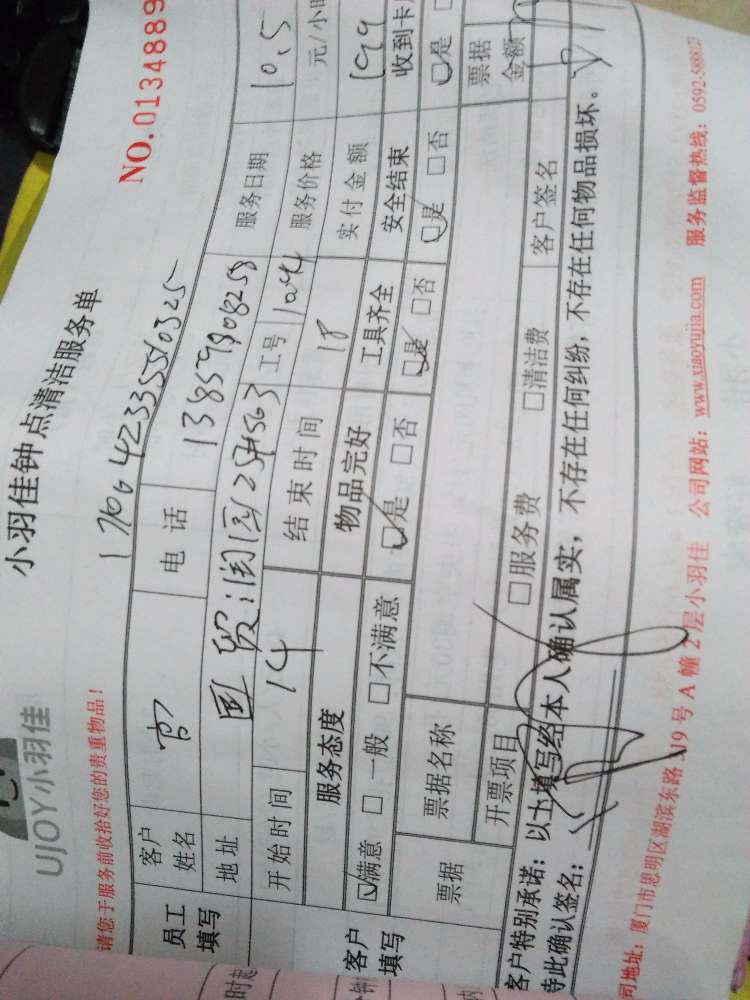 UJOY小羽佳
小羽佳钟点清洁服务单
NO.0134889
请您于服务前收拾好您的贵重物品!
员工填写
客户姓名 官 电话 13859908258 服务日期 10.5
地址 工号 服务价格 元/小时
开始时间 14 结束时间 18 实付金额 199
客户填写
服务态度 物品完好 工具齐全 安全结束 收到卡
☑满意 □一般 □不满意 ☑是 □否 ☑是 □否 ☑是 □否 ☑是
票据 票据名称 票据金额
开票项目 □服务费 □清洁费 客户签名
客户特别承诺:以上填写经本人确认属实,不存在任何纠纷,不存在任何物品损坏。
等此确认签名:
司地址:厦门市思明区湖滨东路319号A幢2层小羽佳 公司网站:www.xiaoyujia.com 服务监督热线:0592-5888127